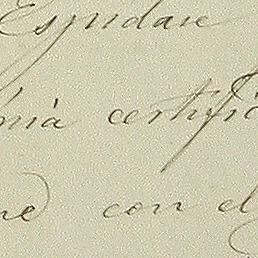 Espidase
nia certific
ne con el